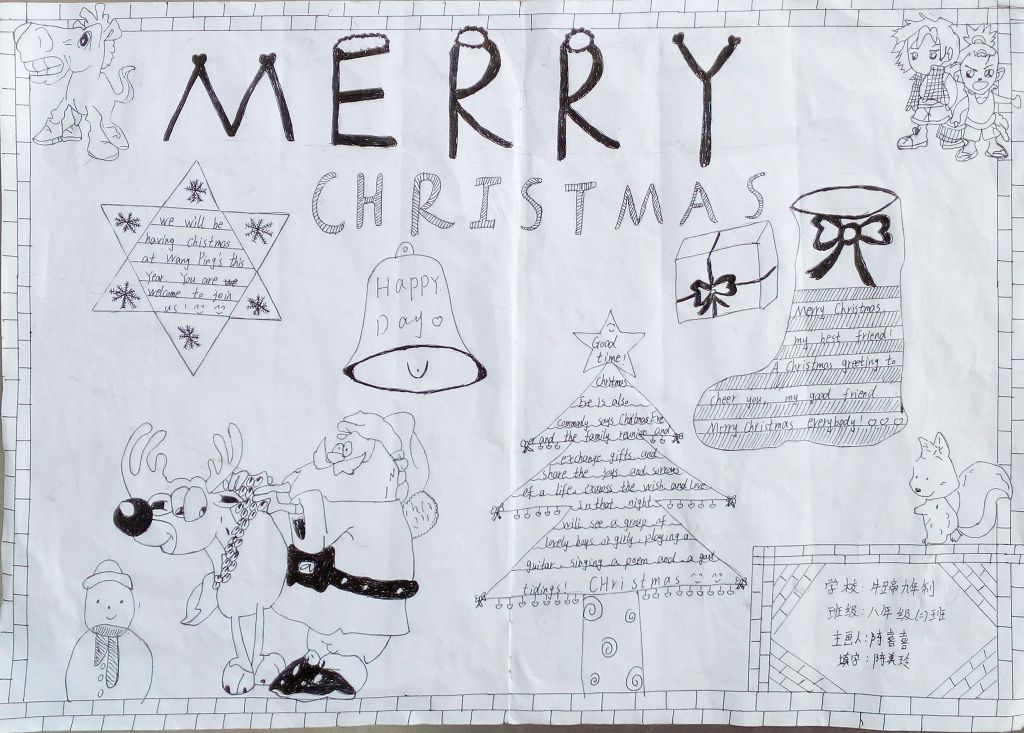 MERRY
CHRISTMAS
we will be
having chistmas
at Wang Ping's this
Year. You are we
welcome to join
us!
Happy
Day
Good
time!
Christmas
Eve is also
commonly says Christmas Eve
and the family reunion and
exchange gifts and
share the joys and sorrows
of a life. Exposs the wish and Love
in that night
will see a group of
lovely boys or girly, playing a
guitar, singing a poem and a gost
tidings! CHristmas
Merry Christmas,
my best friend!
A Christmas greeting to
cheer you, my good friend
Merry Christmas everybody!
学校:牛蹄九年制
班级:八年级(二)班
主画人:陈喜喜
填字:陈美玲